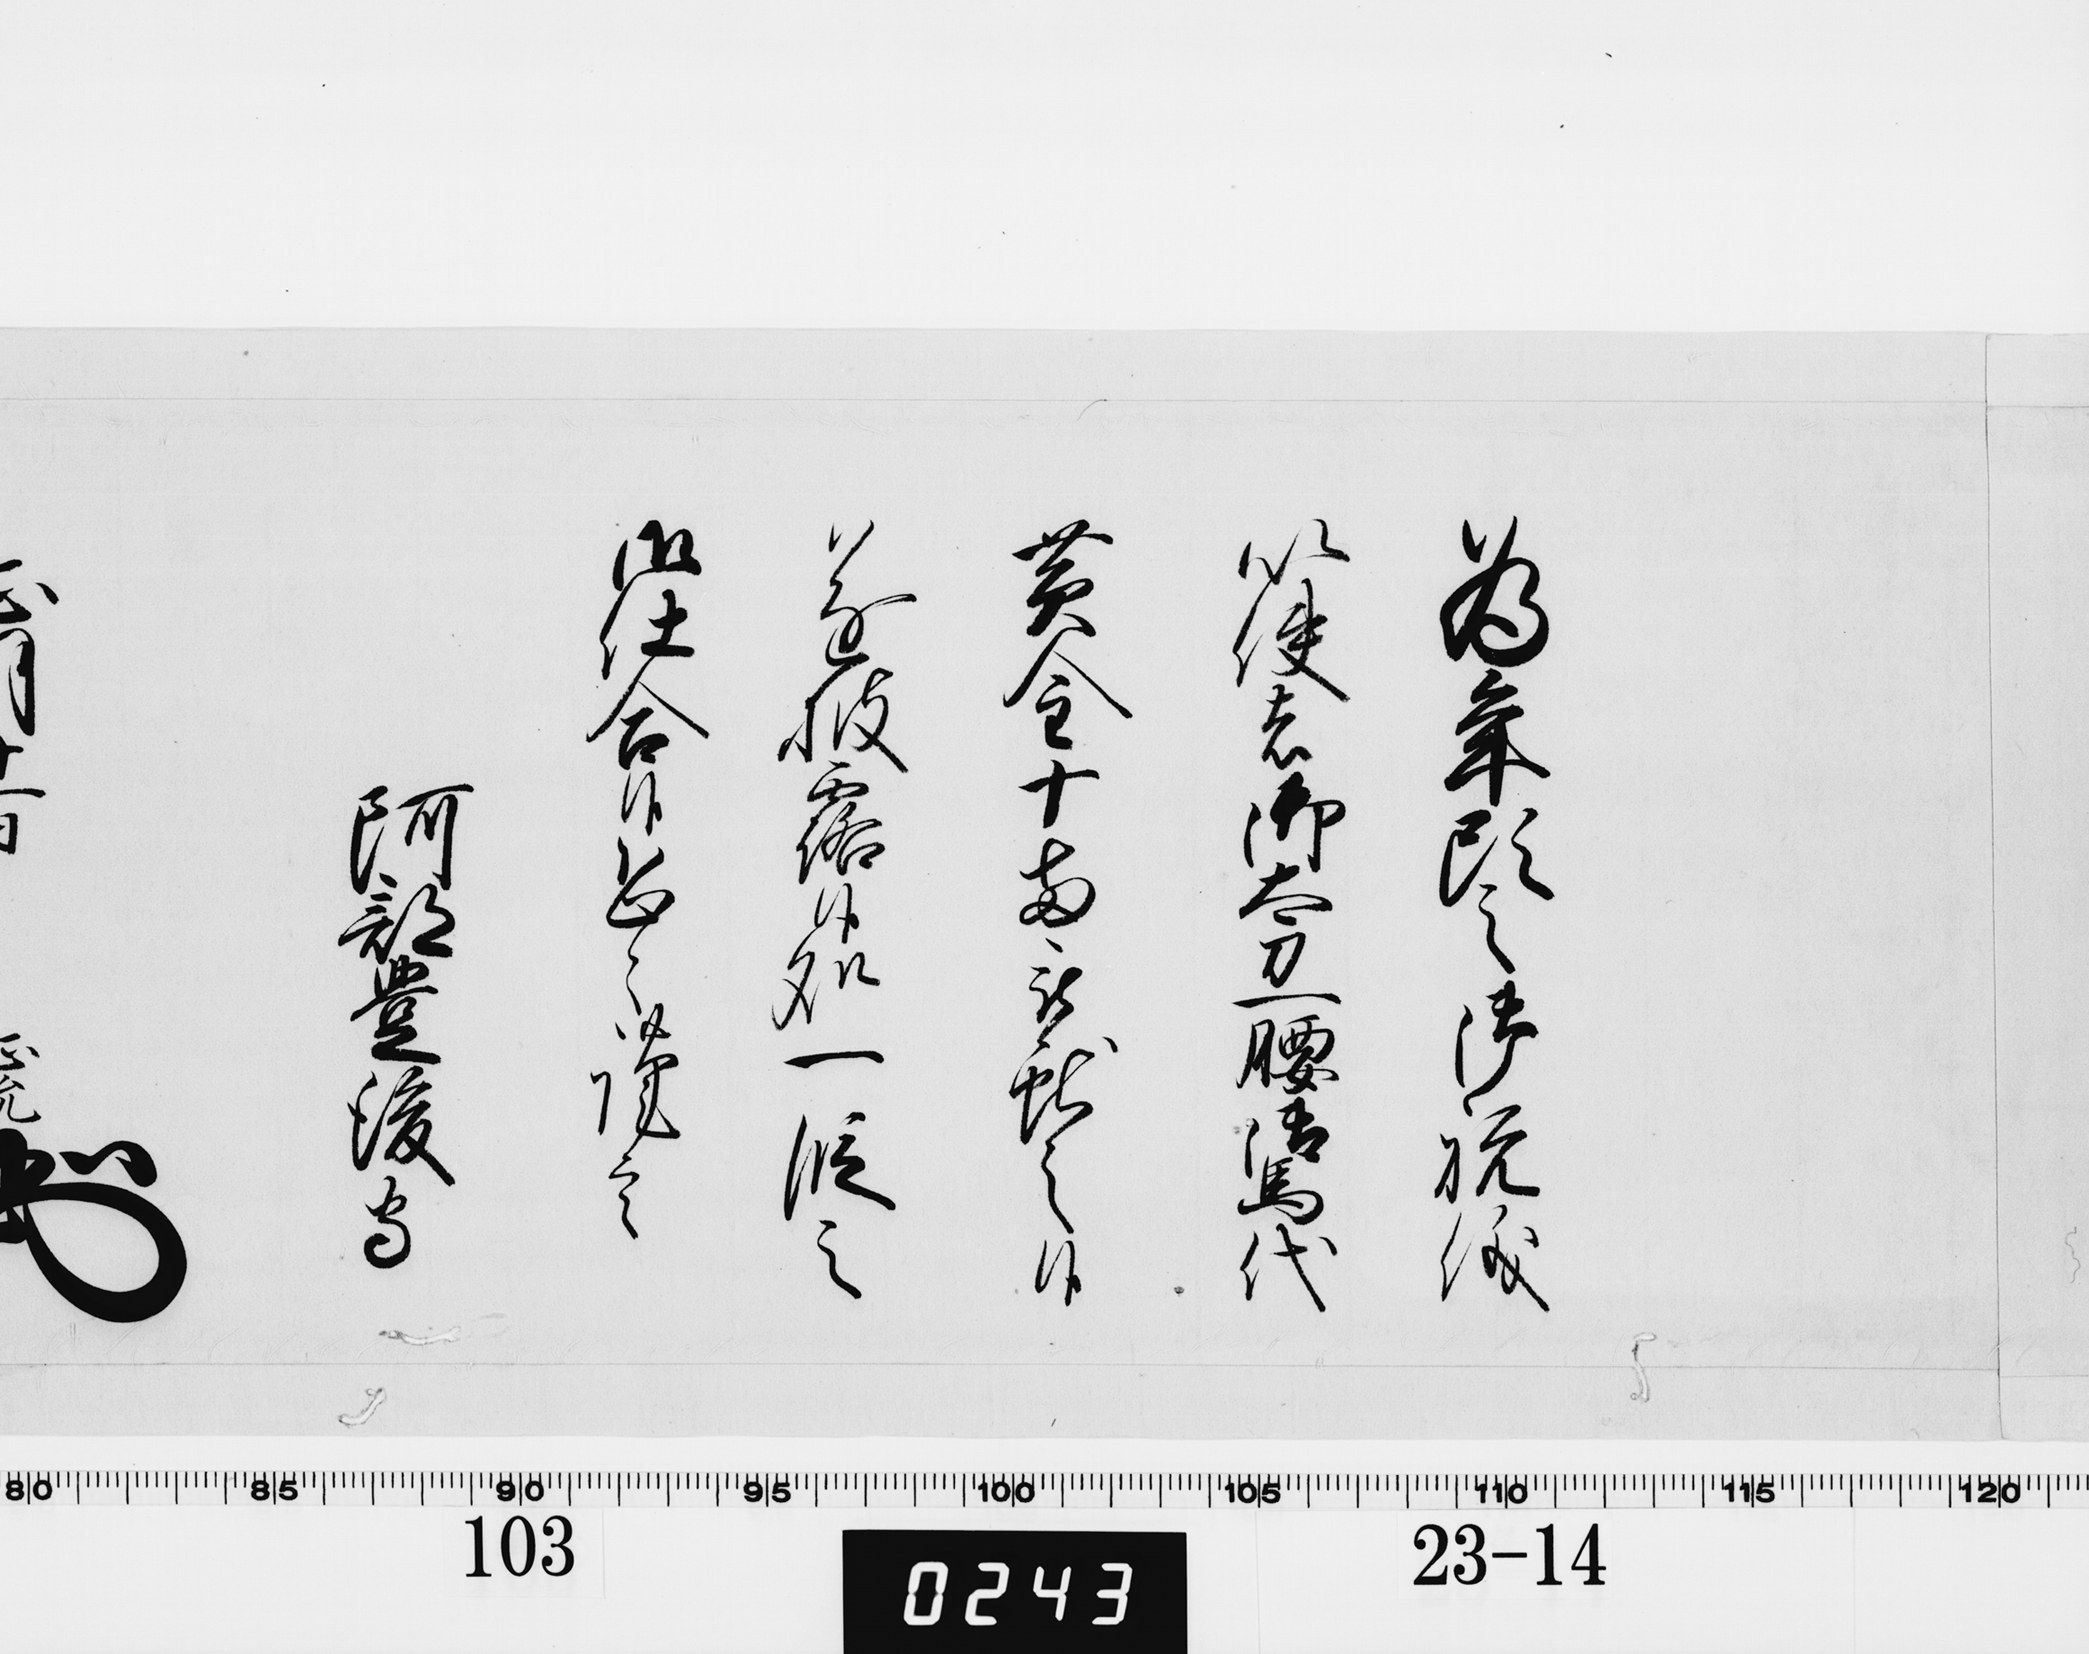 為年頭之御祝儀
以使者御太刀一腰御馬代
黄金十両被献之候
遂披露候処一段之
御仕合候恐々謹言
阿部豊後守
正月十一日
正允
80 85 90 95 100 105 110 115 120
103
0243
23-14